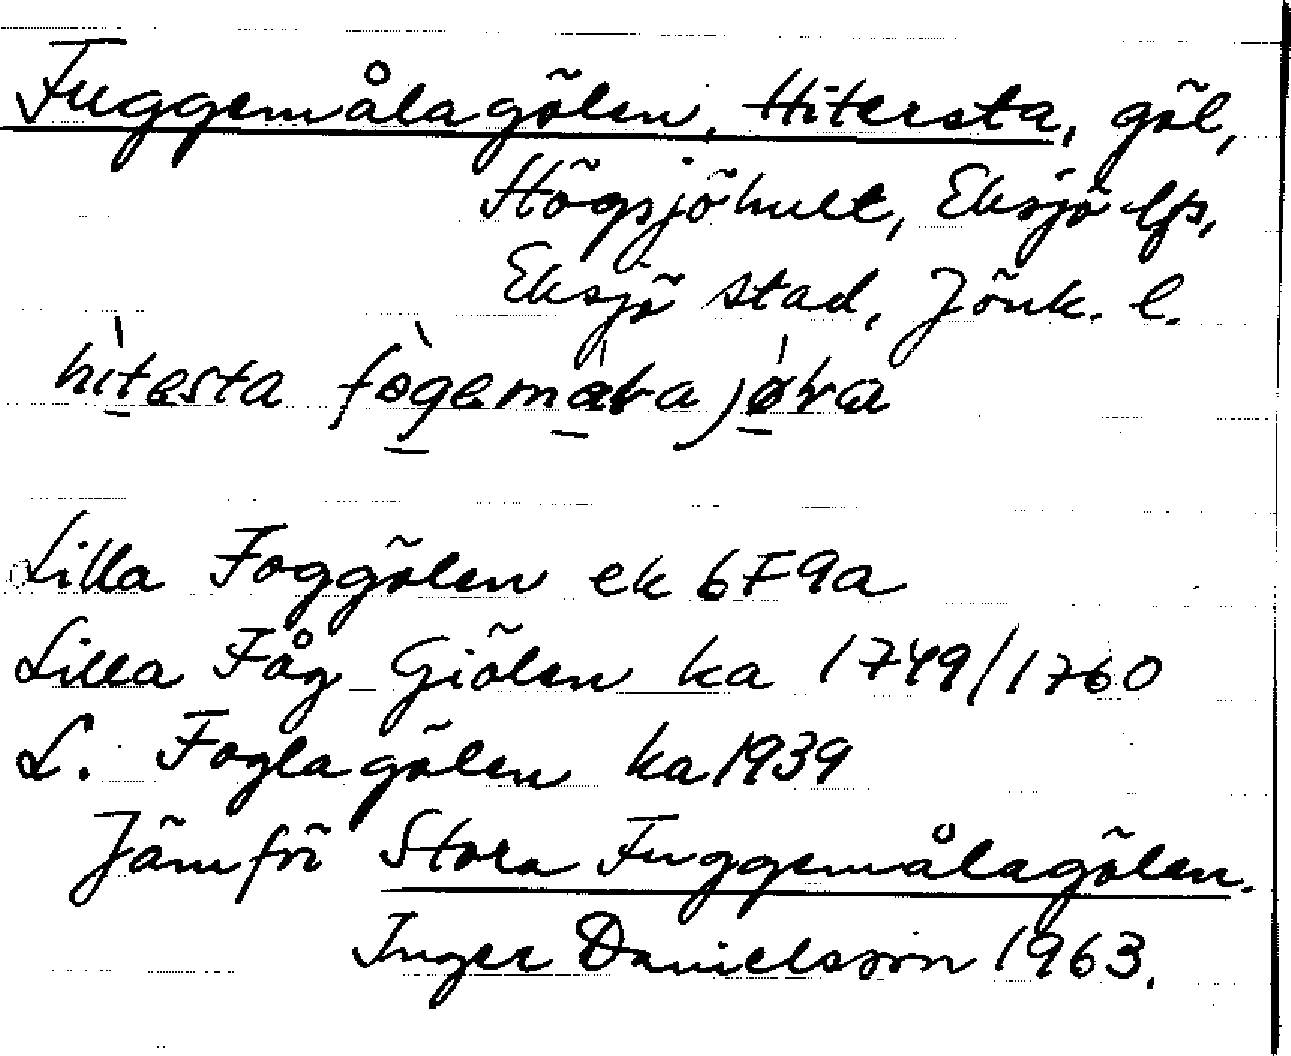 Fuggemålagölen, Hitersta, göl,
Högsjöhult, Eksjö lfs,
Eksjö stad, Jönk. l.
hìtesta fògemàɬa jøɬa
Lilla Foggölen ek 6F9a
Lilla Fåg Giölen ka 1749/1760
L. Foglagölen ka 1939
Jämför Stora Fuggemålagölen.
Inger Danielsson 1963.